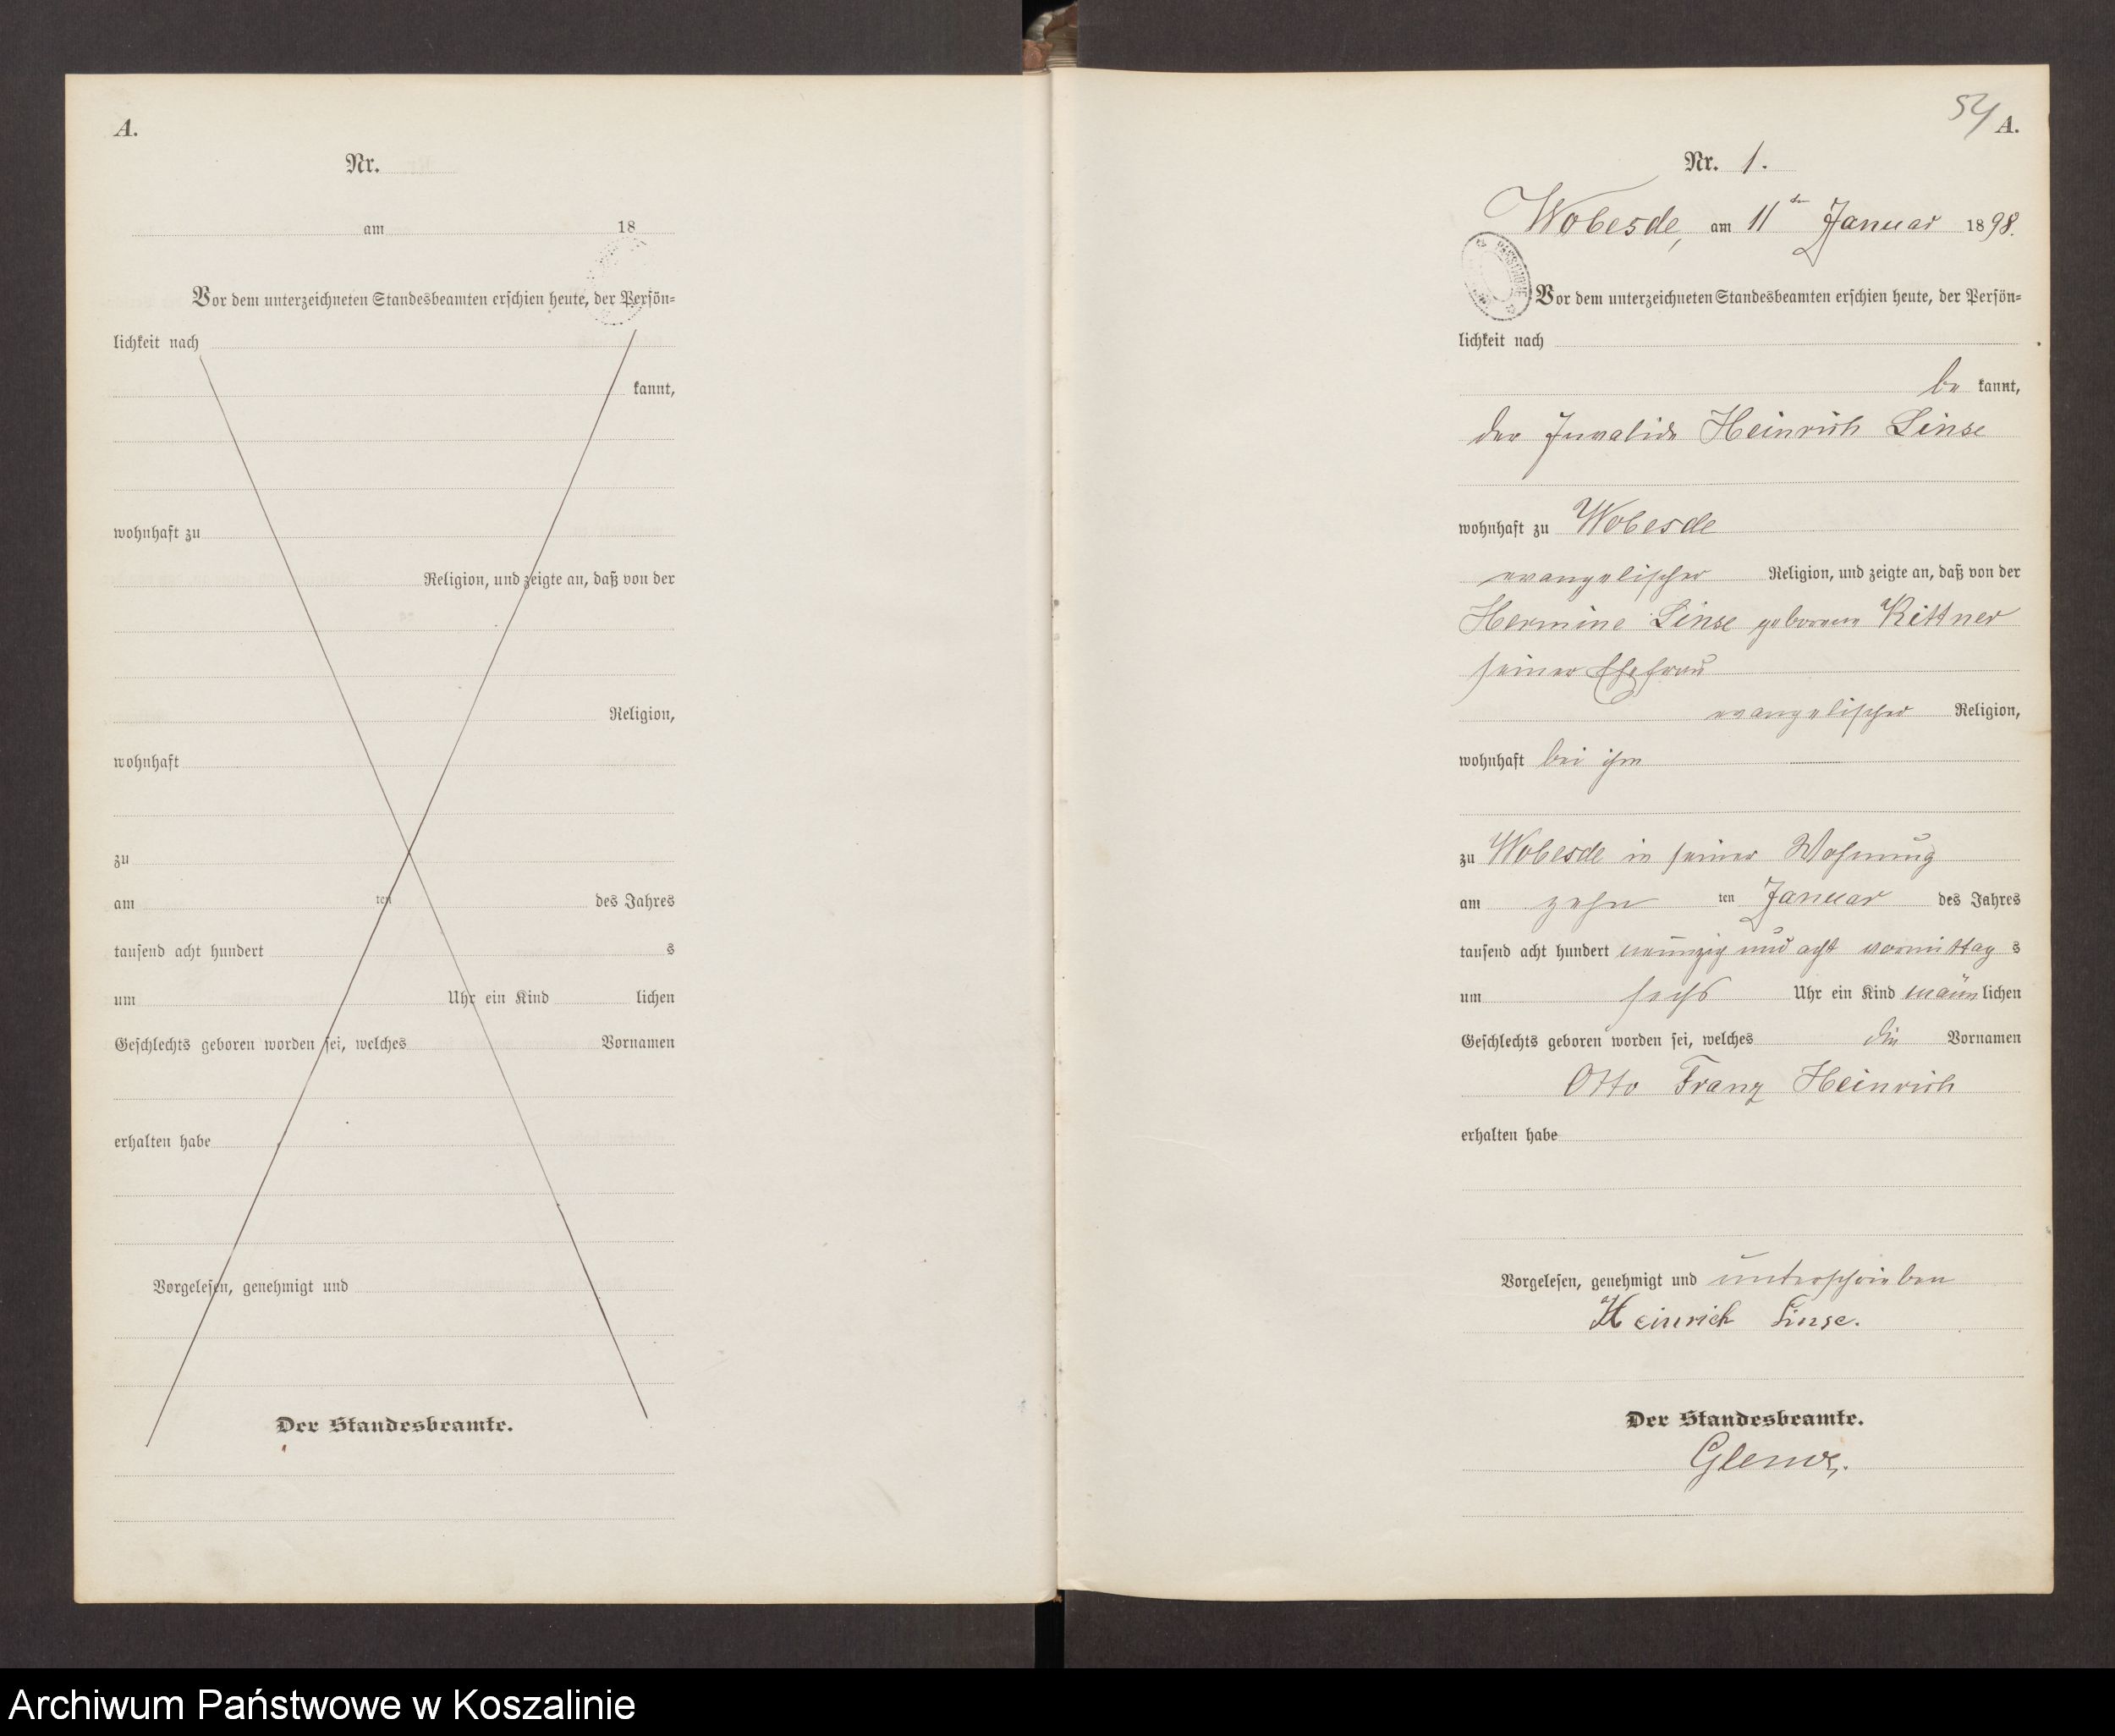 A.
Nr.
am 18
Vor dem unterzeichneten Standesbeamten erschien heute, der Persön-
lichkeit nach
kannt,
wohnhaft zu
Religion, und zeigte an, daß von der
Religion,
wohnhaft
zu
am ten des Jahres
tausend acht hundert s
um Uhr ein Kind lichen
Geschlechts geboren worden sei, welches Vornamen
erhalten habe
Vorgelesen, genehmigt und
Der Standesbeamte.
54 A.
Nr. 1.
Wobesde, am 11ten Januar 1898.
Vor dem unterzeichneten Standesbeamten erschien heute, der Persön-
lichkeit nach
be kannt,
der Invalide Heinrich Linse
wohnhaft zu Wobesde
evangelischer Religion, und zeigte an, daß von der
Hermine Linse geborene Kittner
seiner Ehefrau
evangelischer Religion,
wohnhaft bei ihm
zu Wobesde in seiner Wohnung
am zehn ten Januar des Jahres
tausend acht hundert neunzig und acht vormittag s
um sechs Uhr ein Kind männlichen
Geschlechts geboren worden sei, welches die Vornamen
Otto Franz Heinrich
erhalten habe
Vorgelesen, genehmigt und unterschrieben
Heinrich Linse.
Der Standesbeamte.
Archiwum Państwowe w Koszalinie